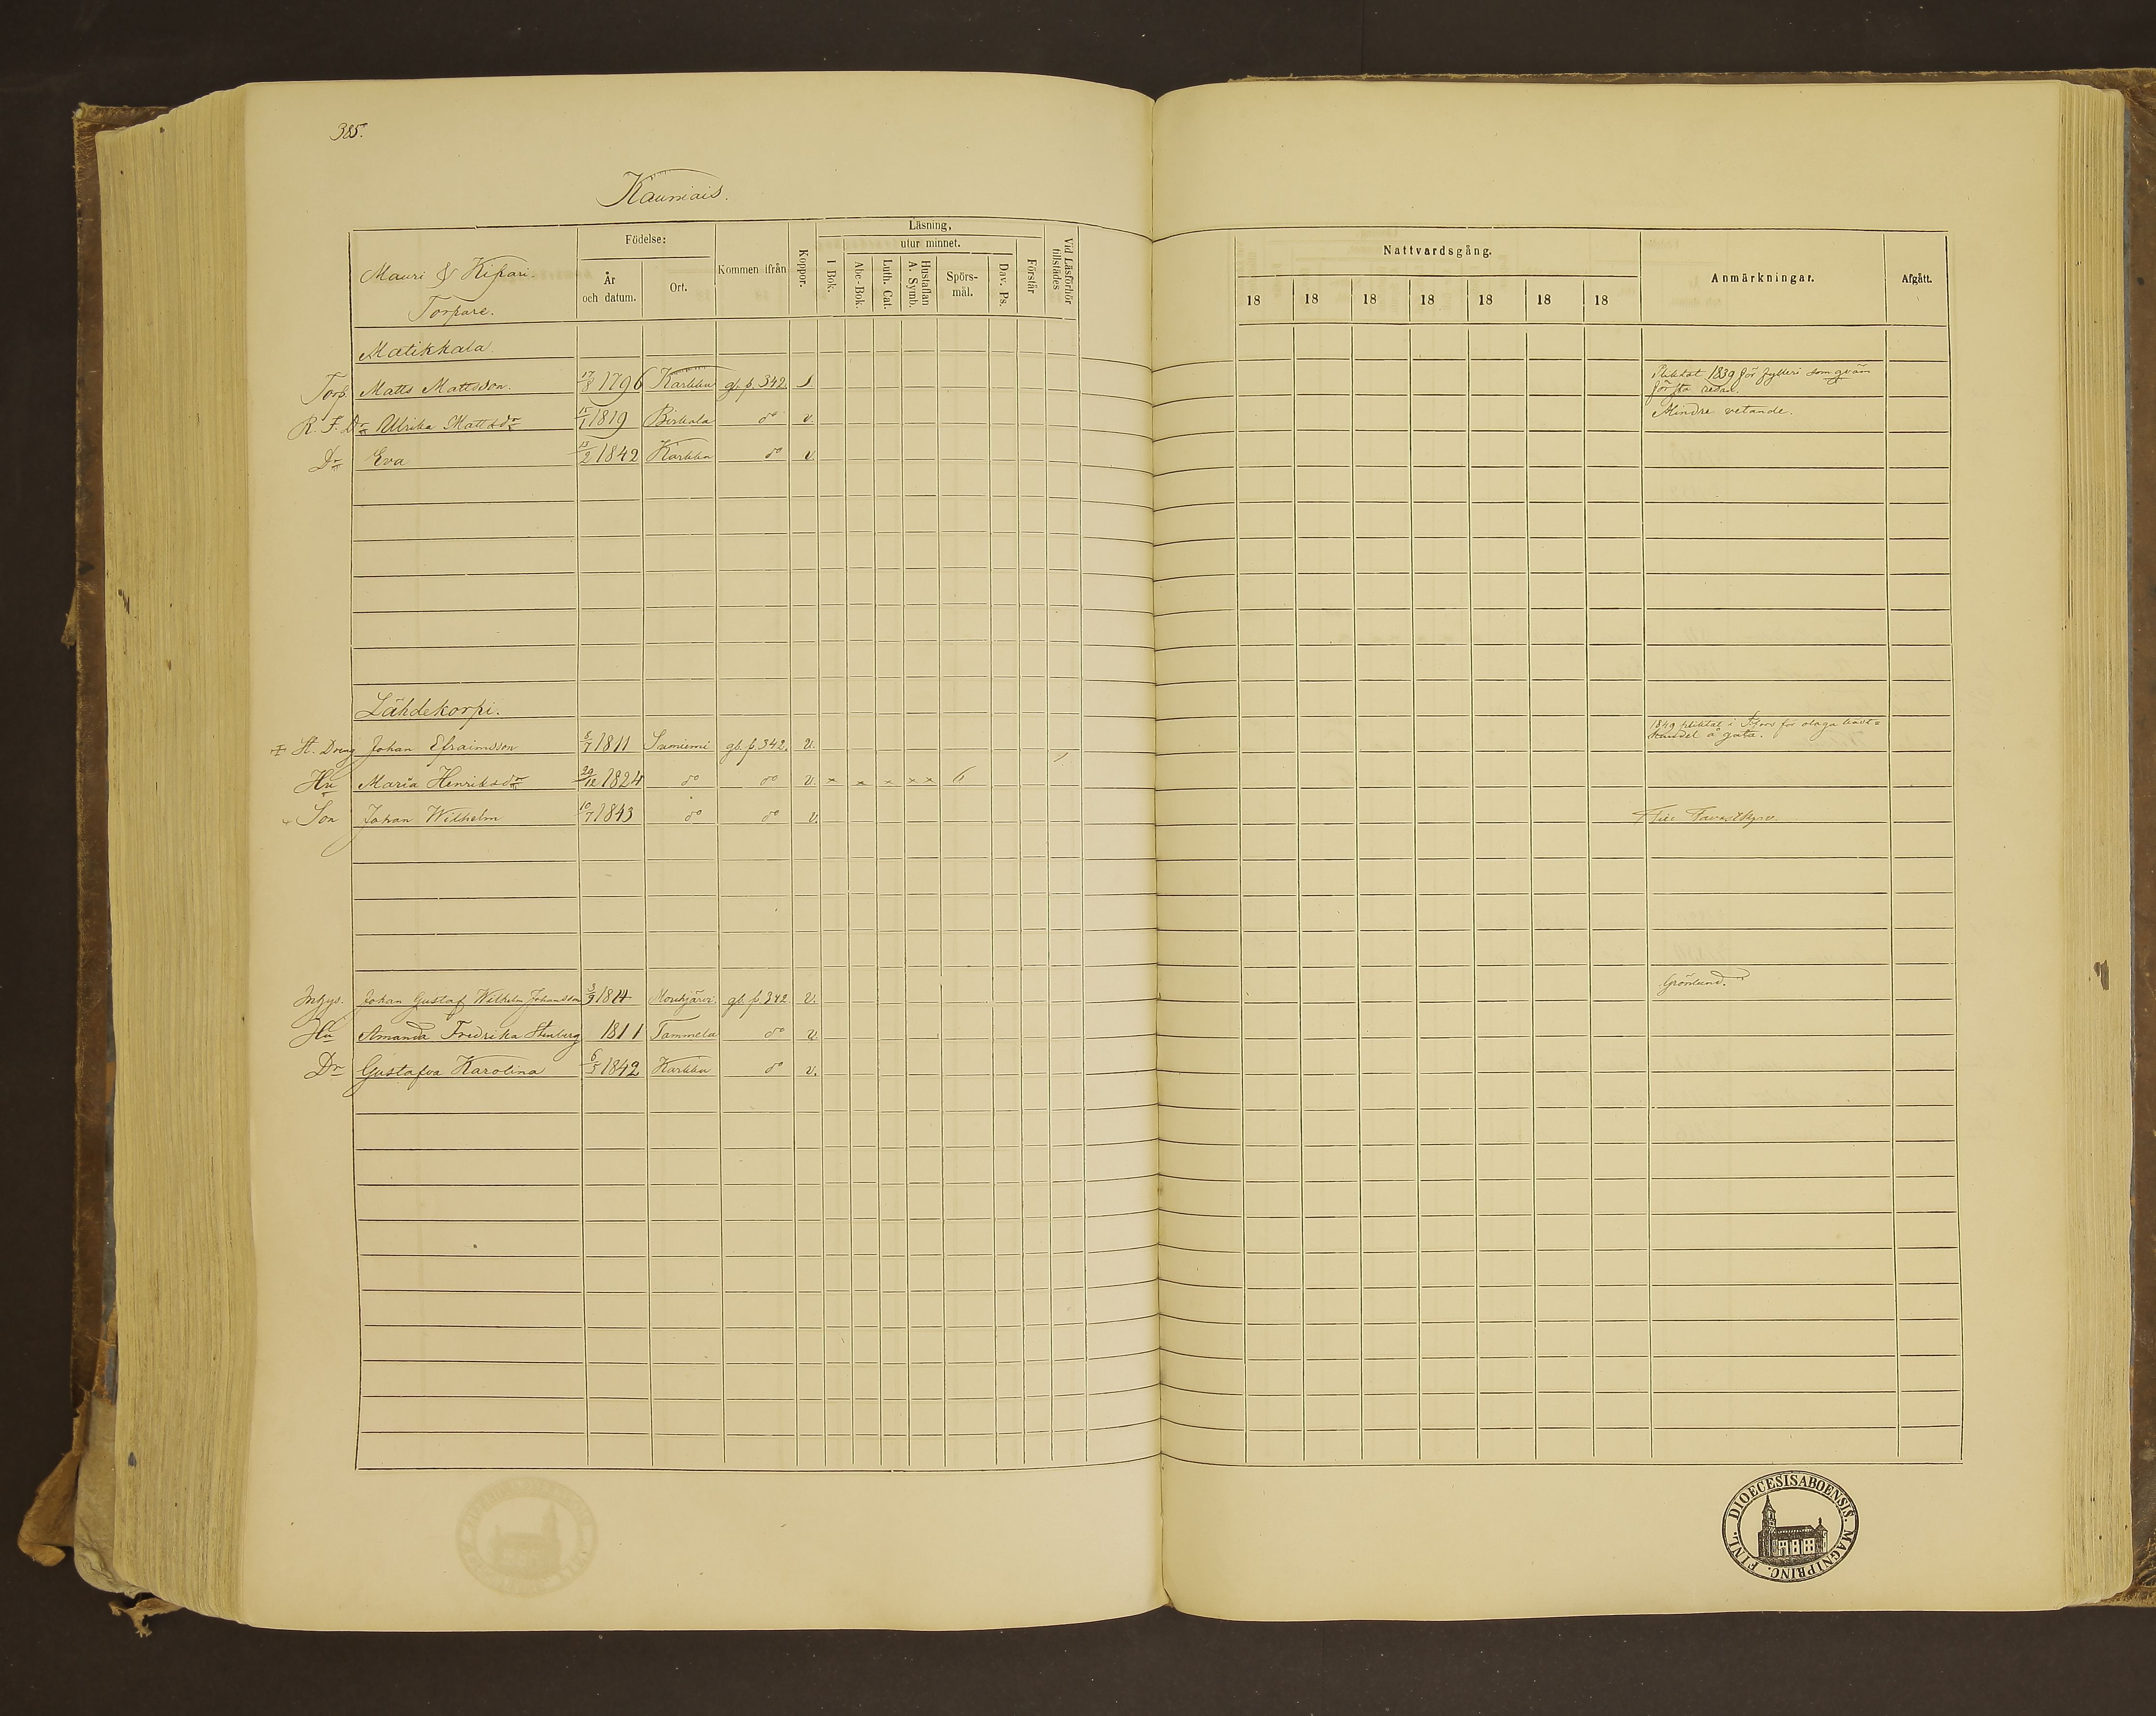 385.
Kauniais.
Mauri & Kipari.
Torpare.
Födelse:
År och datum.
Ort.
Kommen ifrån
Koppor.
Läsning,
I Bok.
utur minnet.
Abc-Bok.
Luth. Cat.
Hustaflan A. Symb.
Spörs-mål.
Dav. Ps.
Förstår
Vid Läsförhör tillstädes
Nattvardsgång.
18 18 18 18 18 18 18
Anmärkningar.
Afgått.
Matikkala.
Torp. Matts Mattsson. 17/8 1796 Karkku gl. p. 342. Pliktat 1839 för fylleri som
första resan.
Ulrika Mattsdr 15/1 1819 Birkala do v. Mindre vetande.
Dr Eva 13/2 1842 Karkku do v.
Lähdekorpi.
St. Dreng Johan Efraimsson 8/7 1811 Suoniemi gl. p. 342. v. 1849 pliktat i för olaga
handel å gata.
Hu Maria Henriksdr 29/12 1824 do do v. × × × × × 6 1.
Son Johan Wilhelm 10/7 1843 do do v. Till Tavastkyro.
Inhys. Johan Gustaf Wilhelm Johansson 3/9 1814 Mouhijärvi gl. p. 342 v. Grönlund.
Hu Amanda Fredrika Stenberg 1811 Tammela do v.
Dr Gustafva Karolina 6/5 1842 Karkku do v.
DIOECESIS ABOENSIS. MAGNI PRINC. FINL.